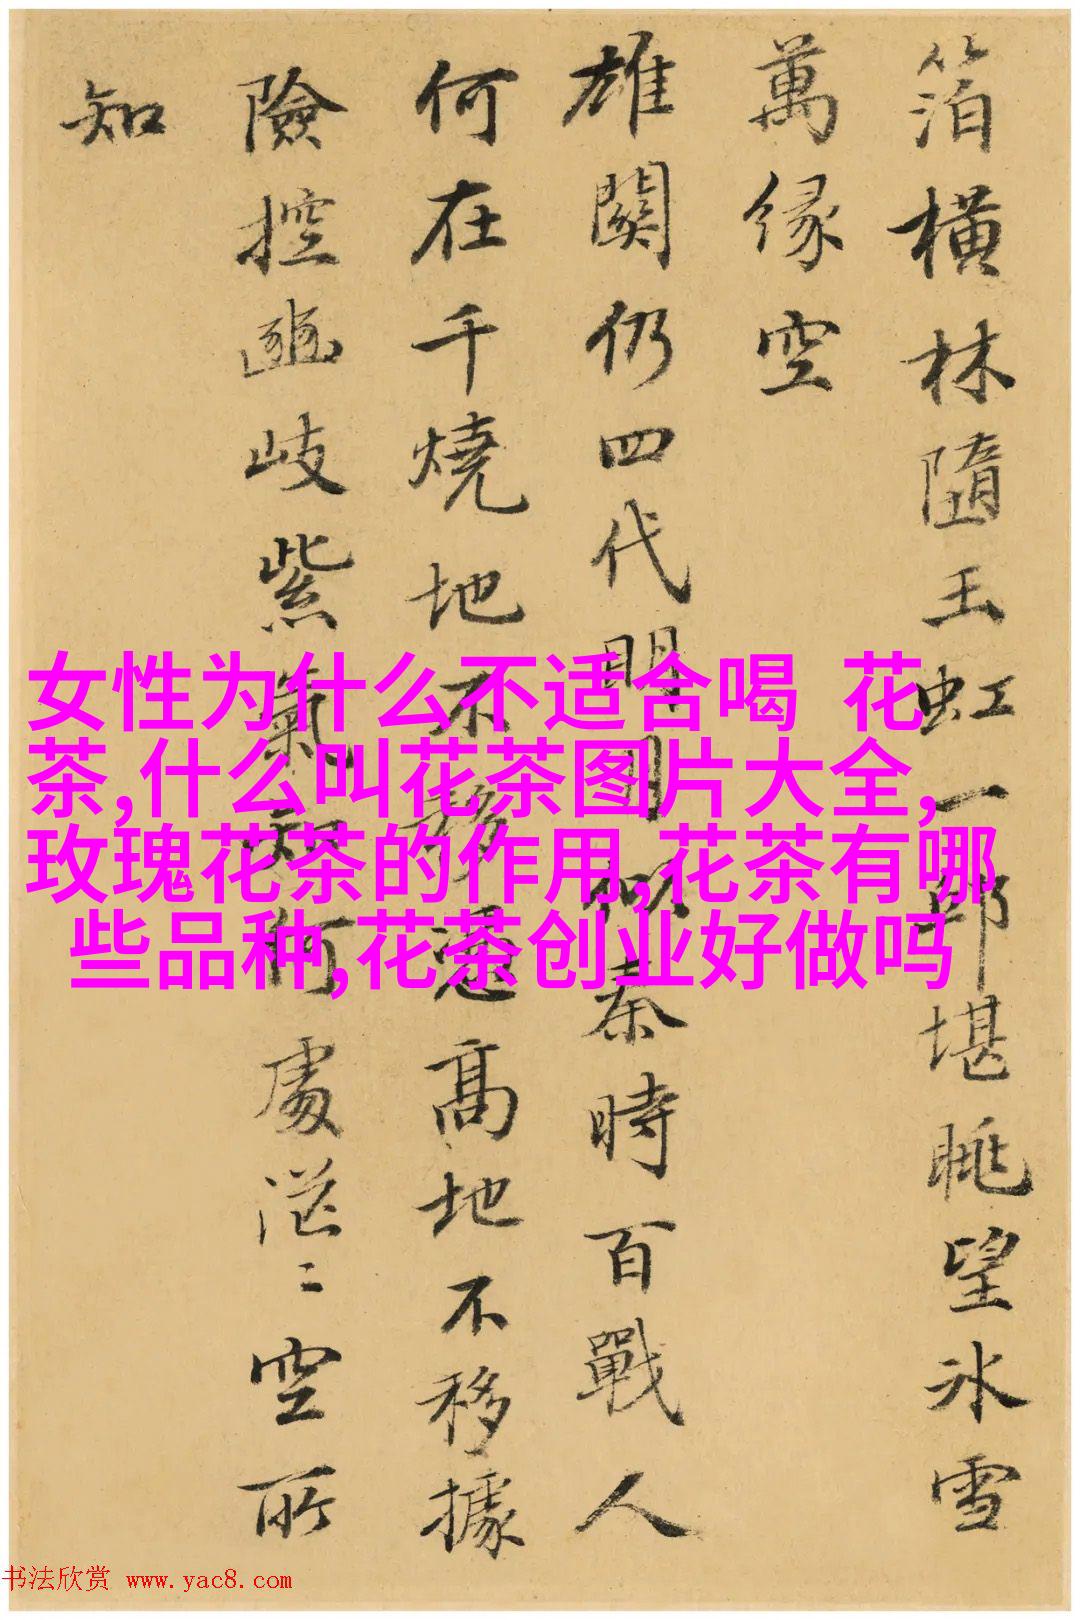 箔横林隨玉虹一邱堪眺望氷雪
萬緣空
雄關仍四代明月似秦時百戰人
何在千燒地不移憑高地不移據
險控豳岐紫氣知何處茫〻空所
知
女性为什么不适合喝 花
茶,什么叫花茶图片大全,
玫瑰花茶的作用,花茶有哪
些品种,花茶创业好做吗
书法欣赏 www.yac8.com